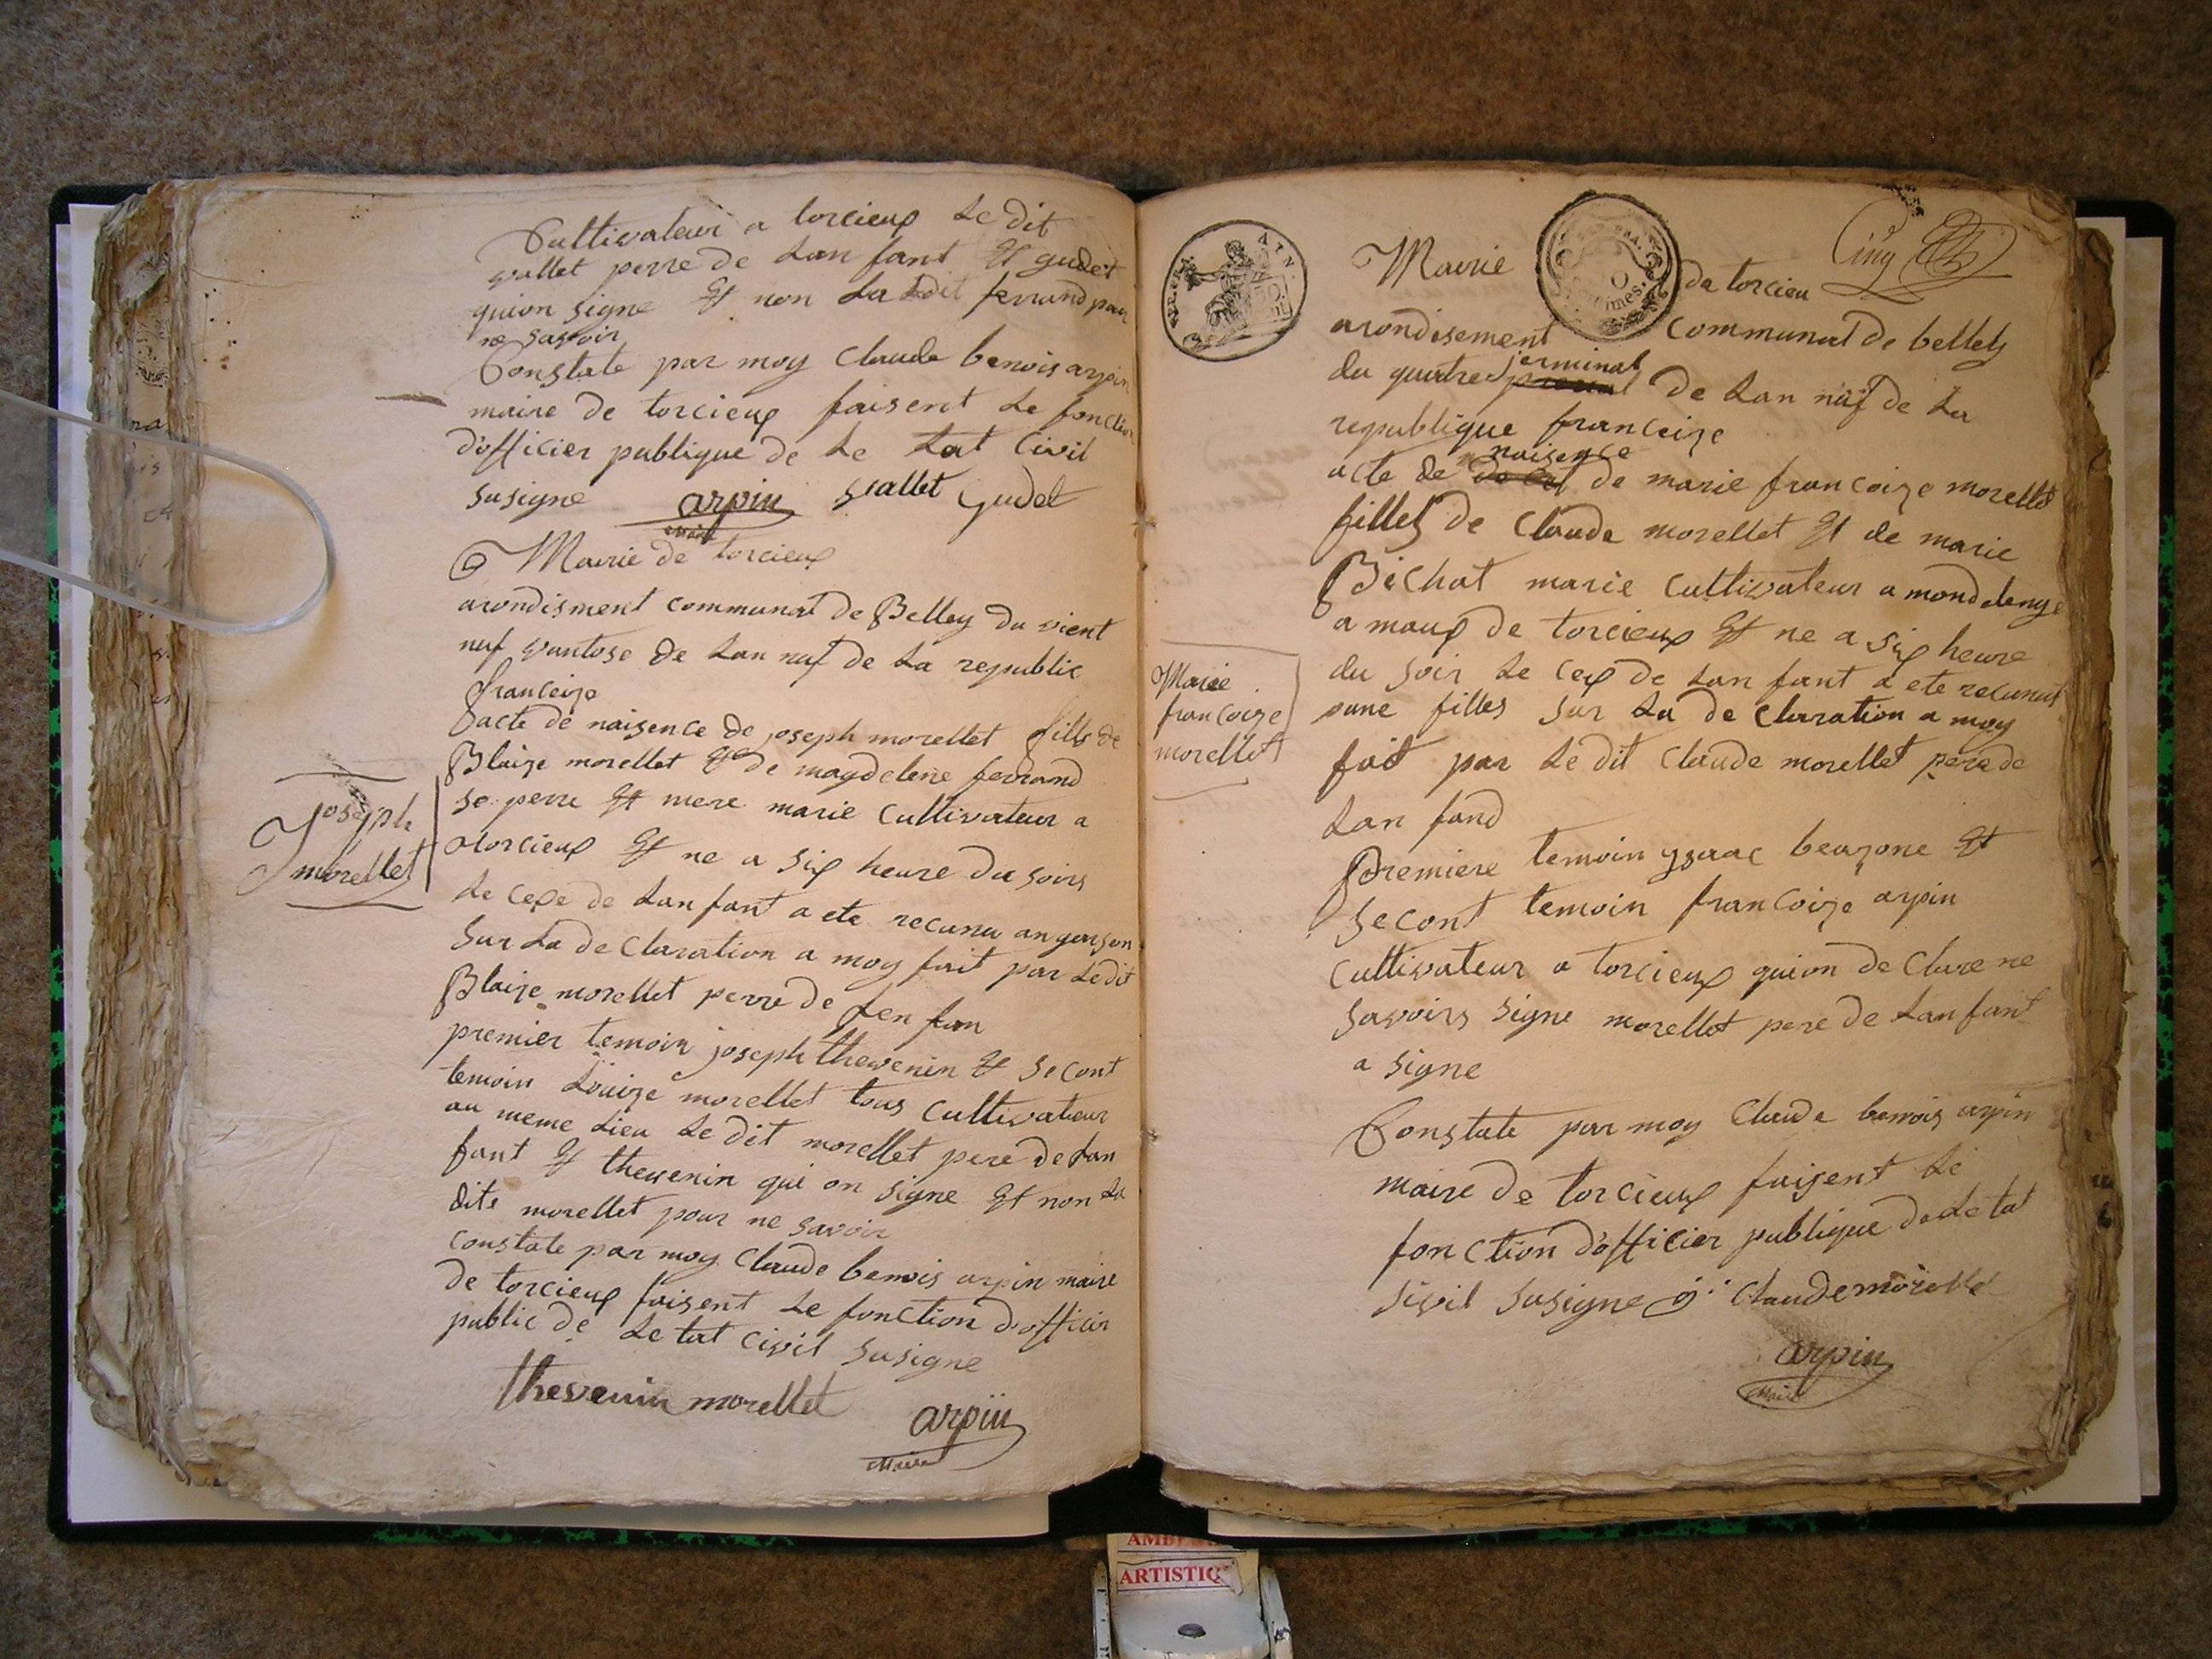 Cultivateur a torcieux Le dit
vallet perre de Lan fant Et gudet
quion signe Et non La dit ferrand pour
ne savoir
Constate par moy Claude benois arpin
maire de torcieux faisent Le fonction
d'officier publique de Le tat Civil
susigne arpin vallet Gudet
maire
Mairie de torcieux
arondisment communal de Belley du vient
nuf vantose de Lan nuf de La republic
franceize
acte de naisence de joseph morellet fills de
Blaize morellet Et de magdelene ferrand
se perre Et mere marie Cultivateur a
torcieux Et ne a six heure du soirs
Joseph
morellet
Le cexe de Lan fant a ete recunu an garson
Sur La de Claration a moy fait par Ledit
Blaize morellet perre de Len fan
premier temoin joseph thevenin Et Secont
temoin Louize morellet tous Cultivateur
au meme Lieu Le dit morellet pere de Lan
fant Et thevenin qui on signe Et non La
dite morellet pour ne savoir
constate par moy Claude benois arpin maire
de torcieux faisent Le fonction d'officir
public de Le tat Civil Susigne
thevenin morellet arpin
Maire
AIN.
REP. FRA.
Cinq
Mairie de torcieu
arondisement communal de belley
du quatre jerminal de Lan nuf de La
republique franceize
acte de naisence de marie francoize morellet
filles de Claude morellet Et de marie
Bichat marie Cultivateur a
a maux de torcieux Et ne a six heure
du soir Le cex de Lan fant a ete recunut
Marie
francoize
morellet
une filles sur La de Claration a moy
fait par Le dit Claude morellet pere de
Lan fand
Premiere temoin ysaac Et
Secont temoin francoize arpin
Cultivateur a torcieux quion de Clare ne
savoirs signe morellet pere de Lanfant
a signe
Constate par moy Claude benois arpin
maire de torcieux faisent Le
fonction d'officier publique de Le tat
Sivil Susigne Claude morellet
arpin
Maire
ARTISTIQ